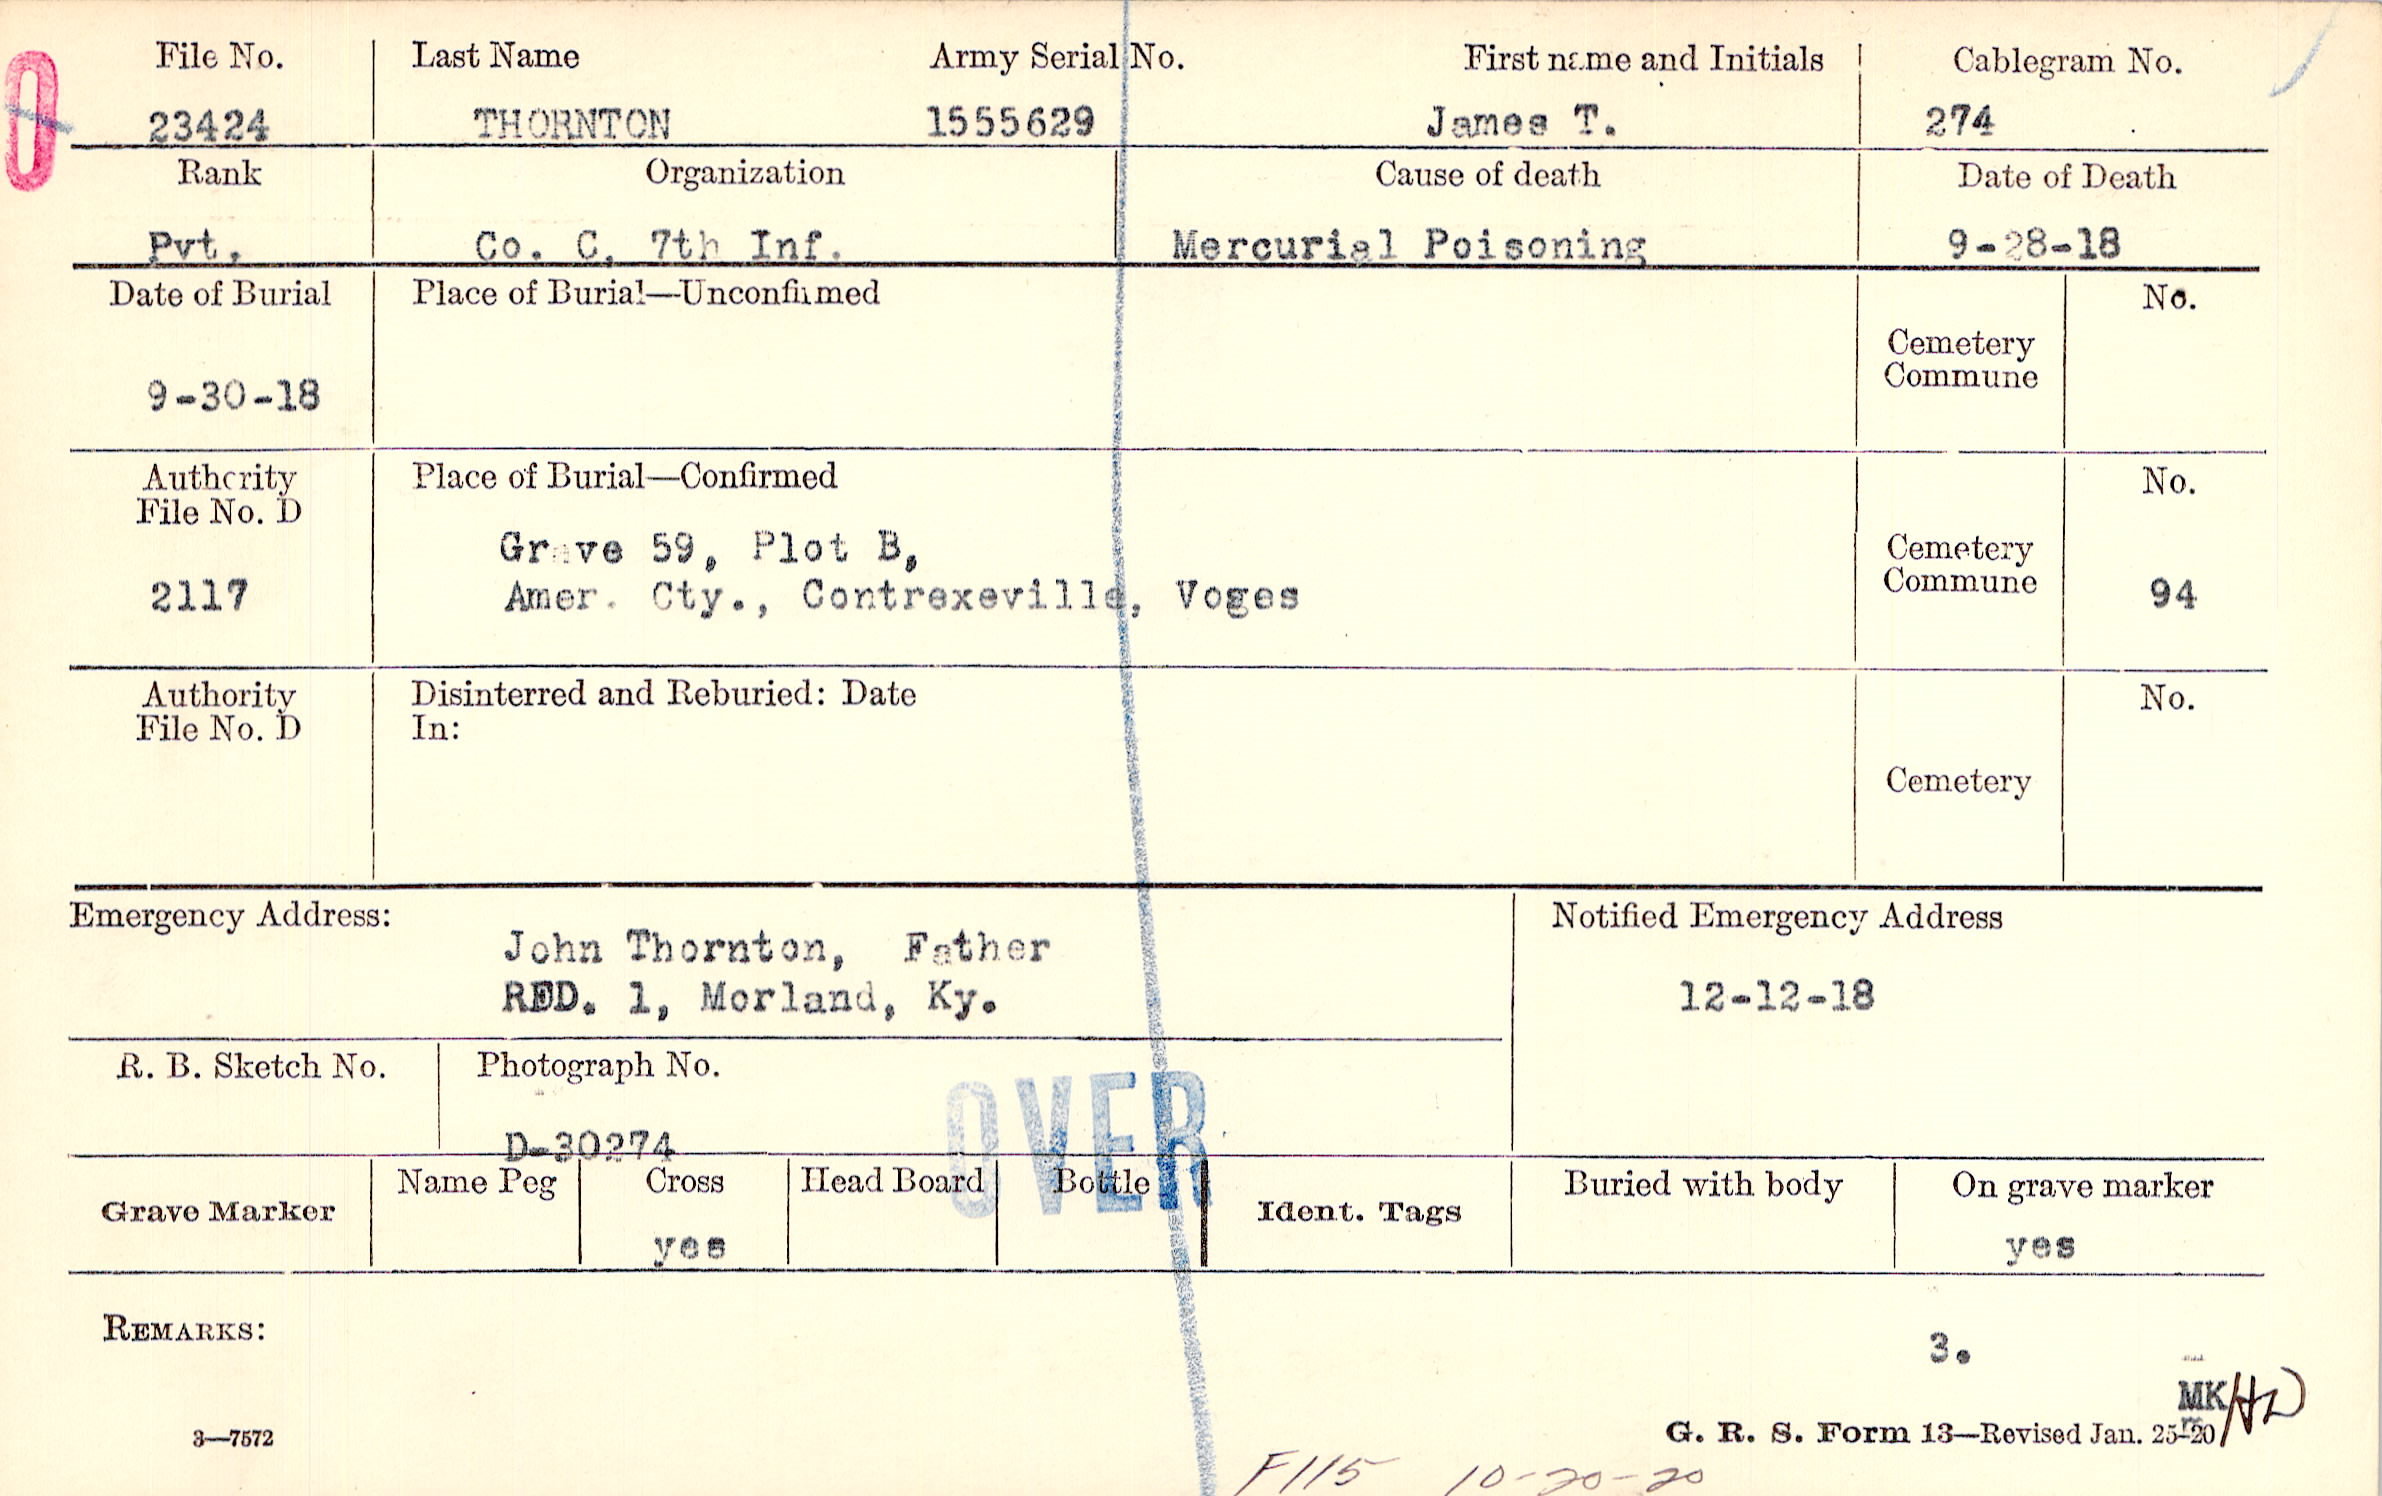 0
File No. Last Name Army Serial No. First name and Initials Cablegram No.
23424 THORNTON 1555629 James T. 274
Rank Organization Cause of death Date of Death
Pvt. Co. C, 7th Inf. Mercurial Poisoning 9-28-18
Date of Burial Place of Burial—Unconfirmed No.
Cemetery
Commune
9-30-18
Authority Place of Burial—Confirmed No.
File No. D
Grave 59, Plot B, Cemetery
2117 Amer. Cty., Contrexeville, Voges Commune 94
Authority Disinterred and Reburied: Date No.
File No. D In:
Cemetery
Emergency Address: Notified Emergency Address
John Thornton, Father
RFD. 1, Morland, Ky. 12-12-18
R. B. Sketch No. Photograph No.
D-30274
OVER
Name Peg Cross Head Board Bottle Buried with body On grave marker
Grave Marker Ident. Tags
yes yes
REMARKS:
3.
MK/HD
3—7572 G. R. S. Form 13—Revised Jan. 25-20
F115 10-20-20